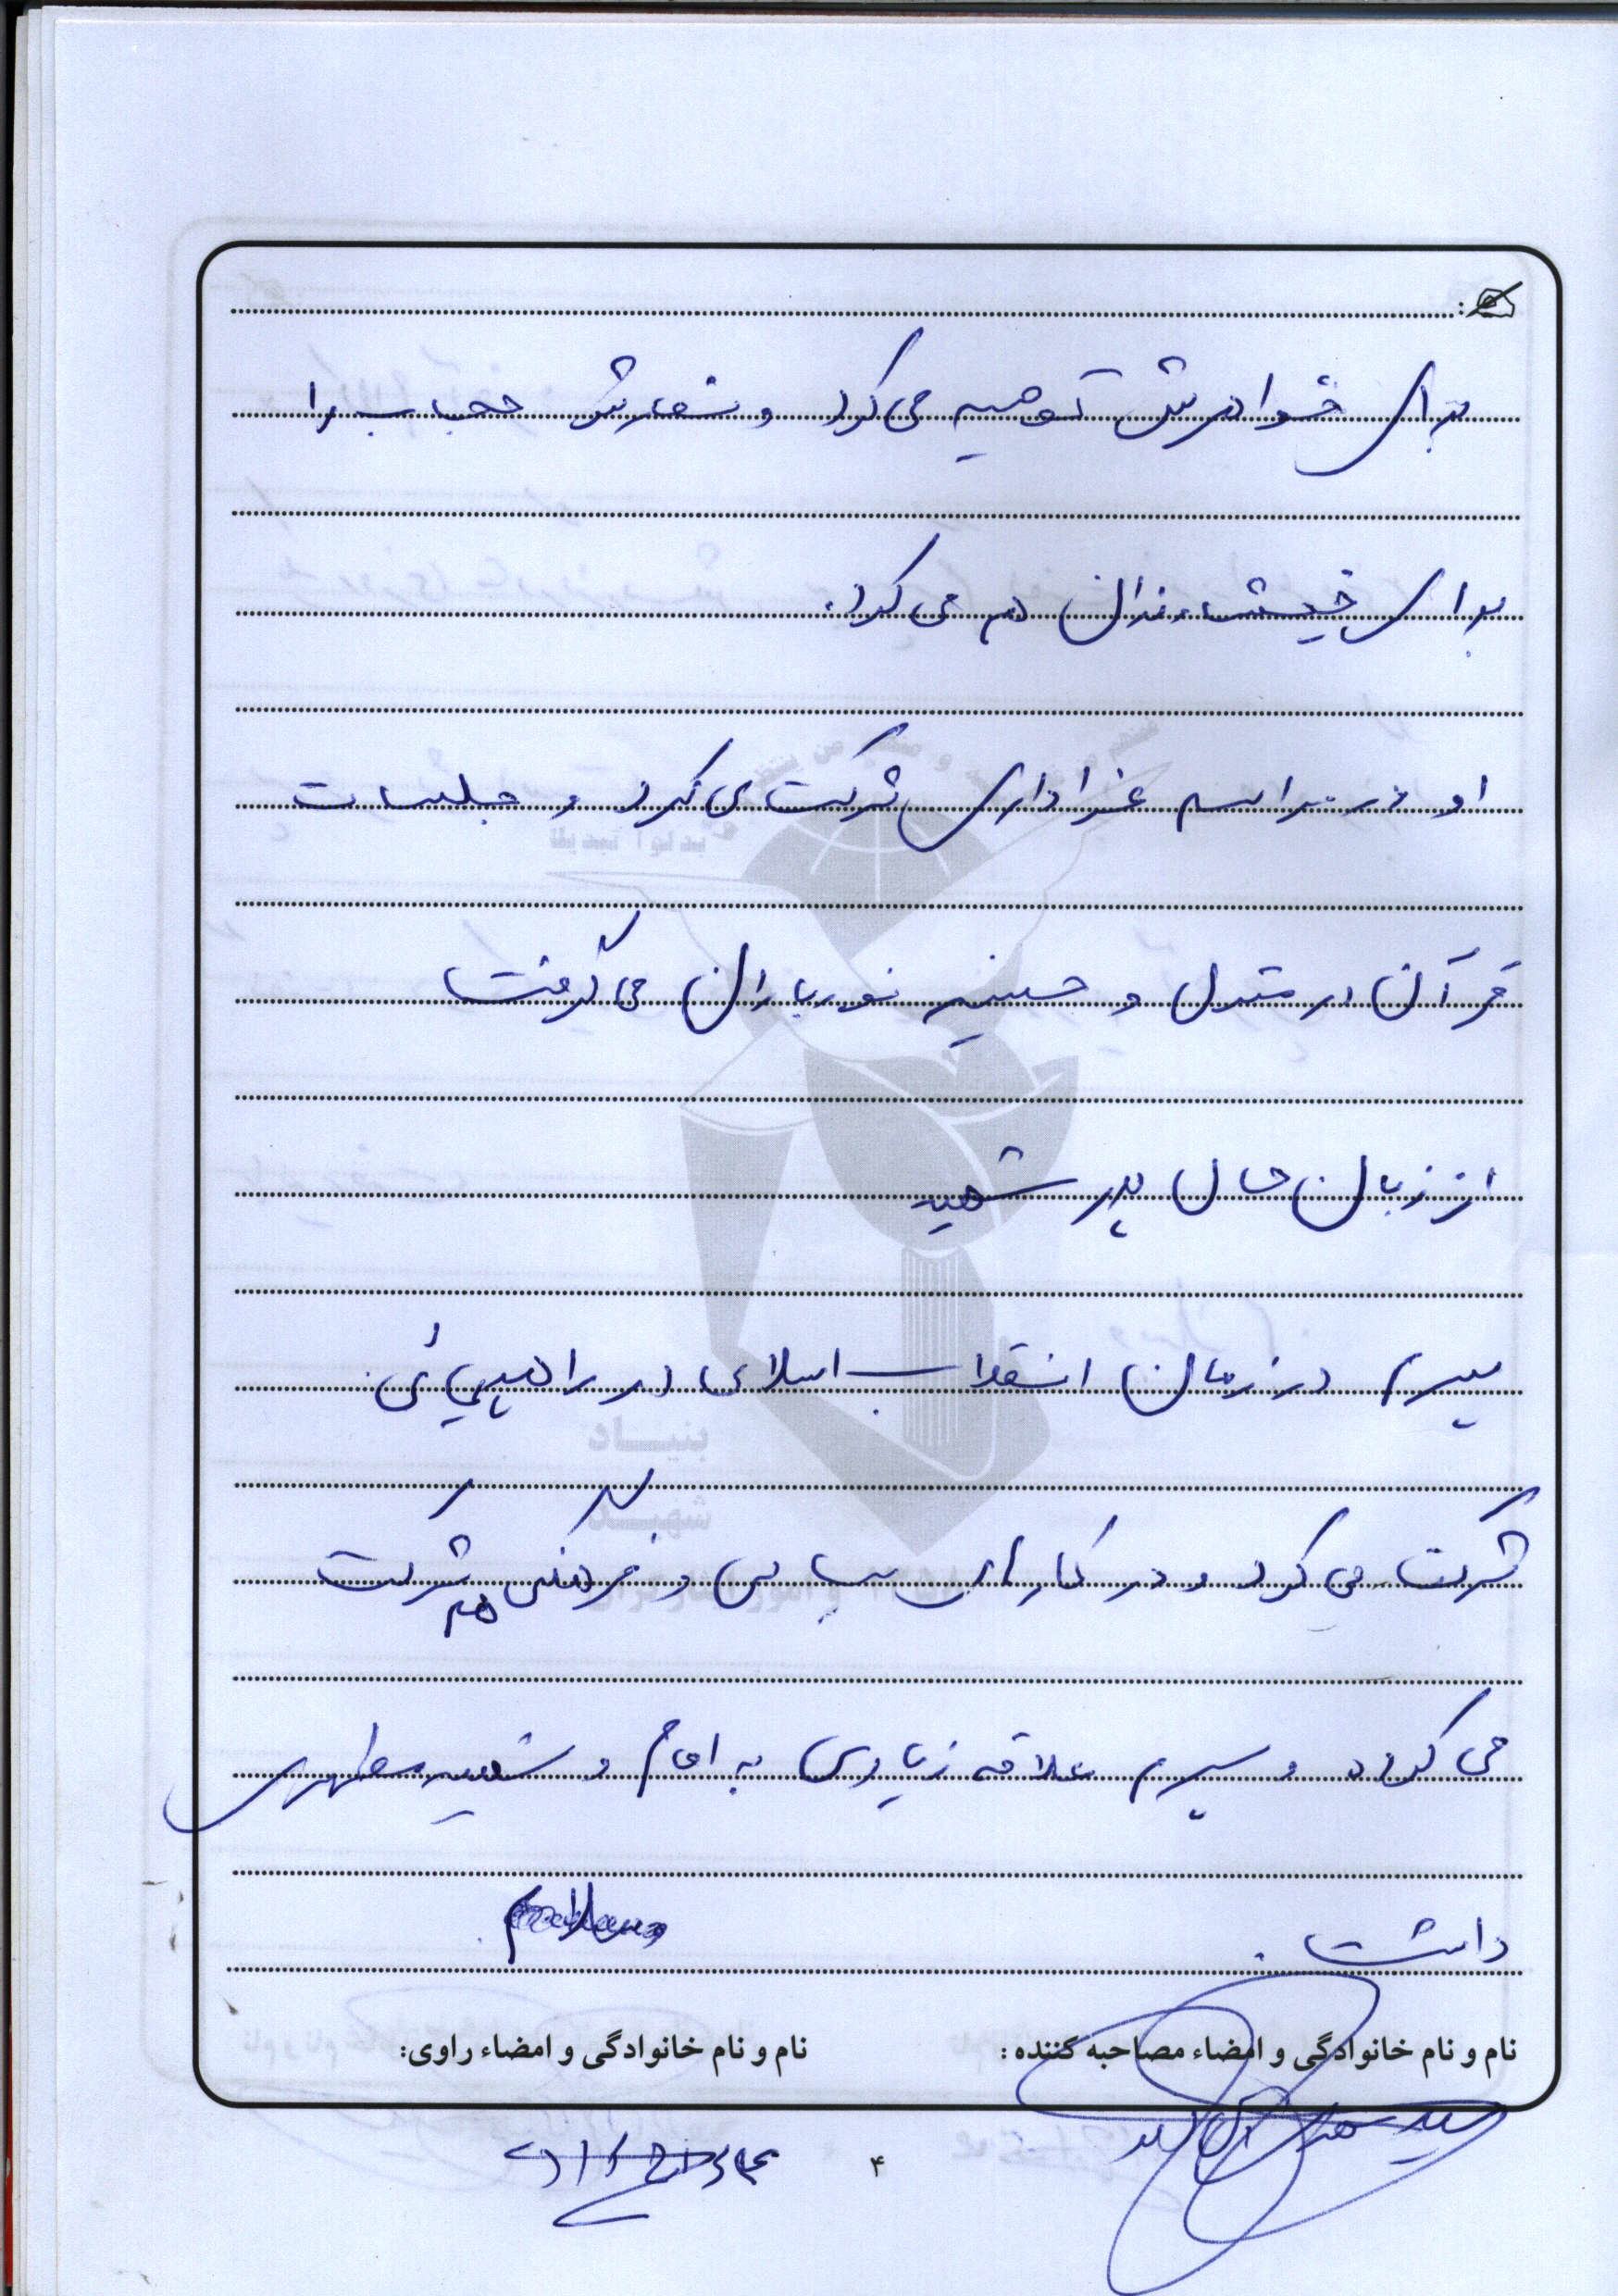 برای خواهرش توصیه می‌کرد و سفارش حجاب را
برای خویشاوندان هم می‌کرد.
او در مراسم عزاداری شرکت می‌کرد و جلسات
قرآن در منزل و حسینیه نورباران می‌گرفت
از زبان حال پدر شهید
پسرم در زمان انقلاب اسلامی در راهپیمائی
شرکت می‌کرد و در کارهای سیاسی و فرهنگی هم شرکت
می‌کرد و پسرم علاقه زیادی به امام و شهید مطهری
داشت.
نام و نام خانوادگی و امضاء مصاحبه کننده: نام و نام خانوادگی و امضاء راوی:
۴